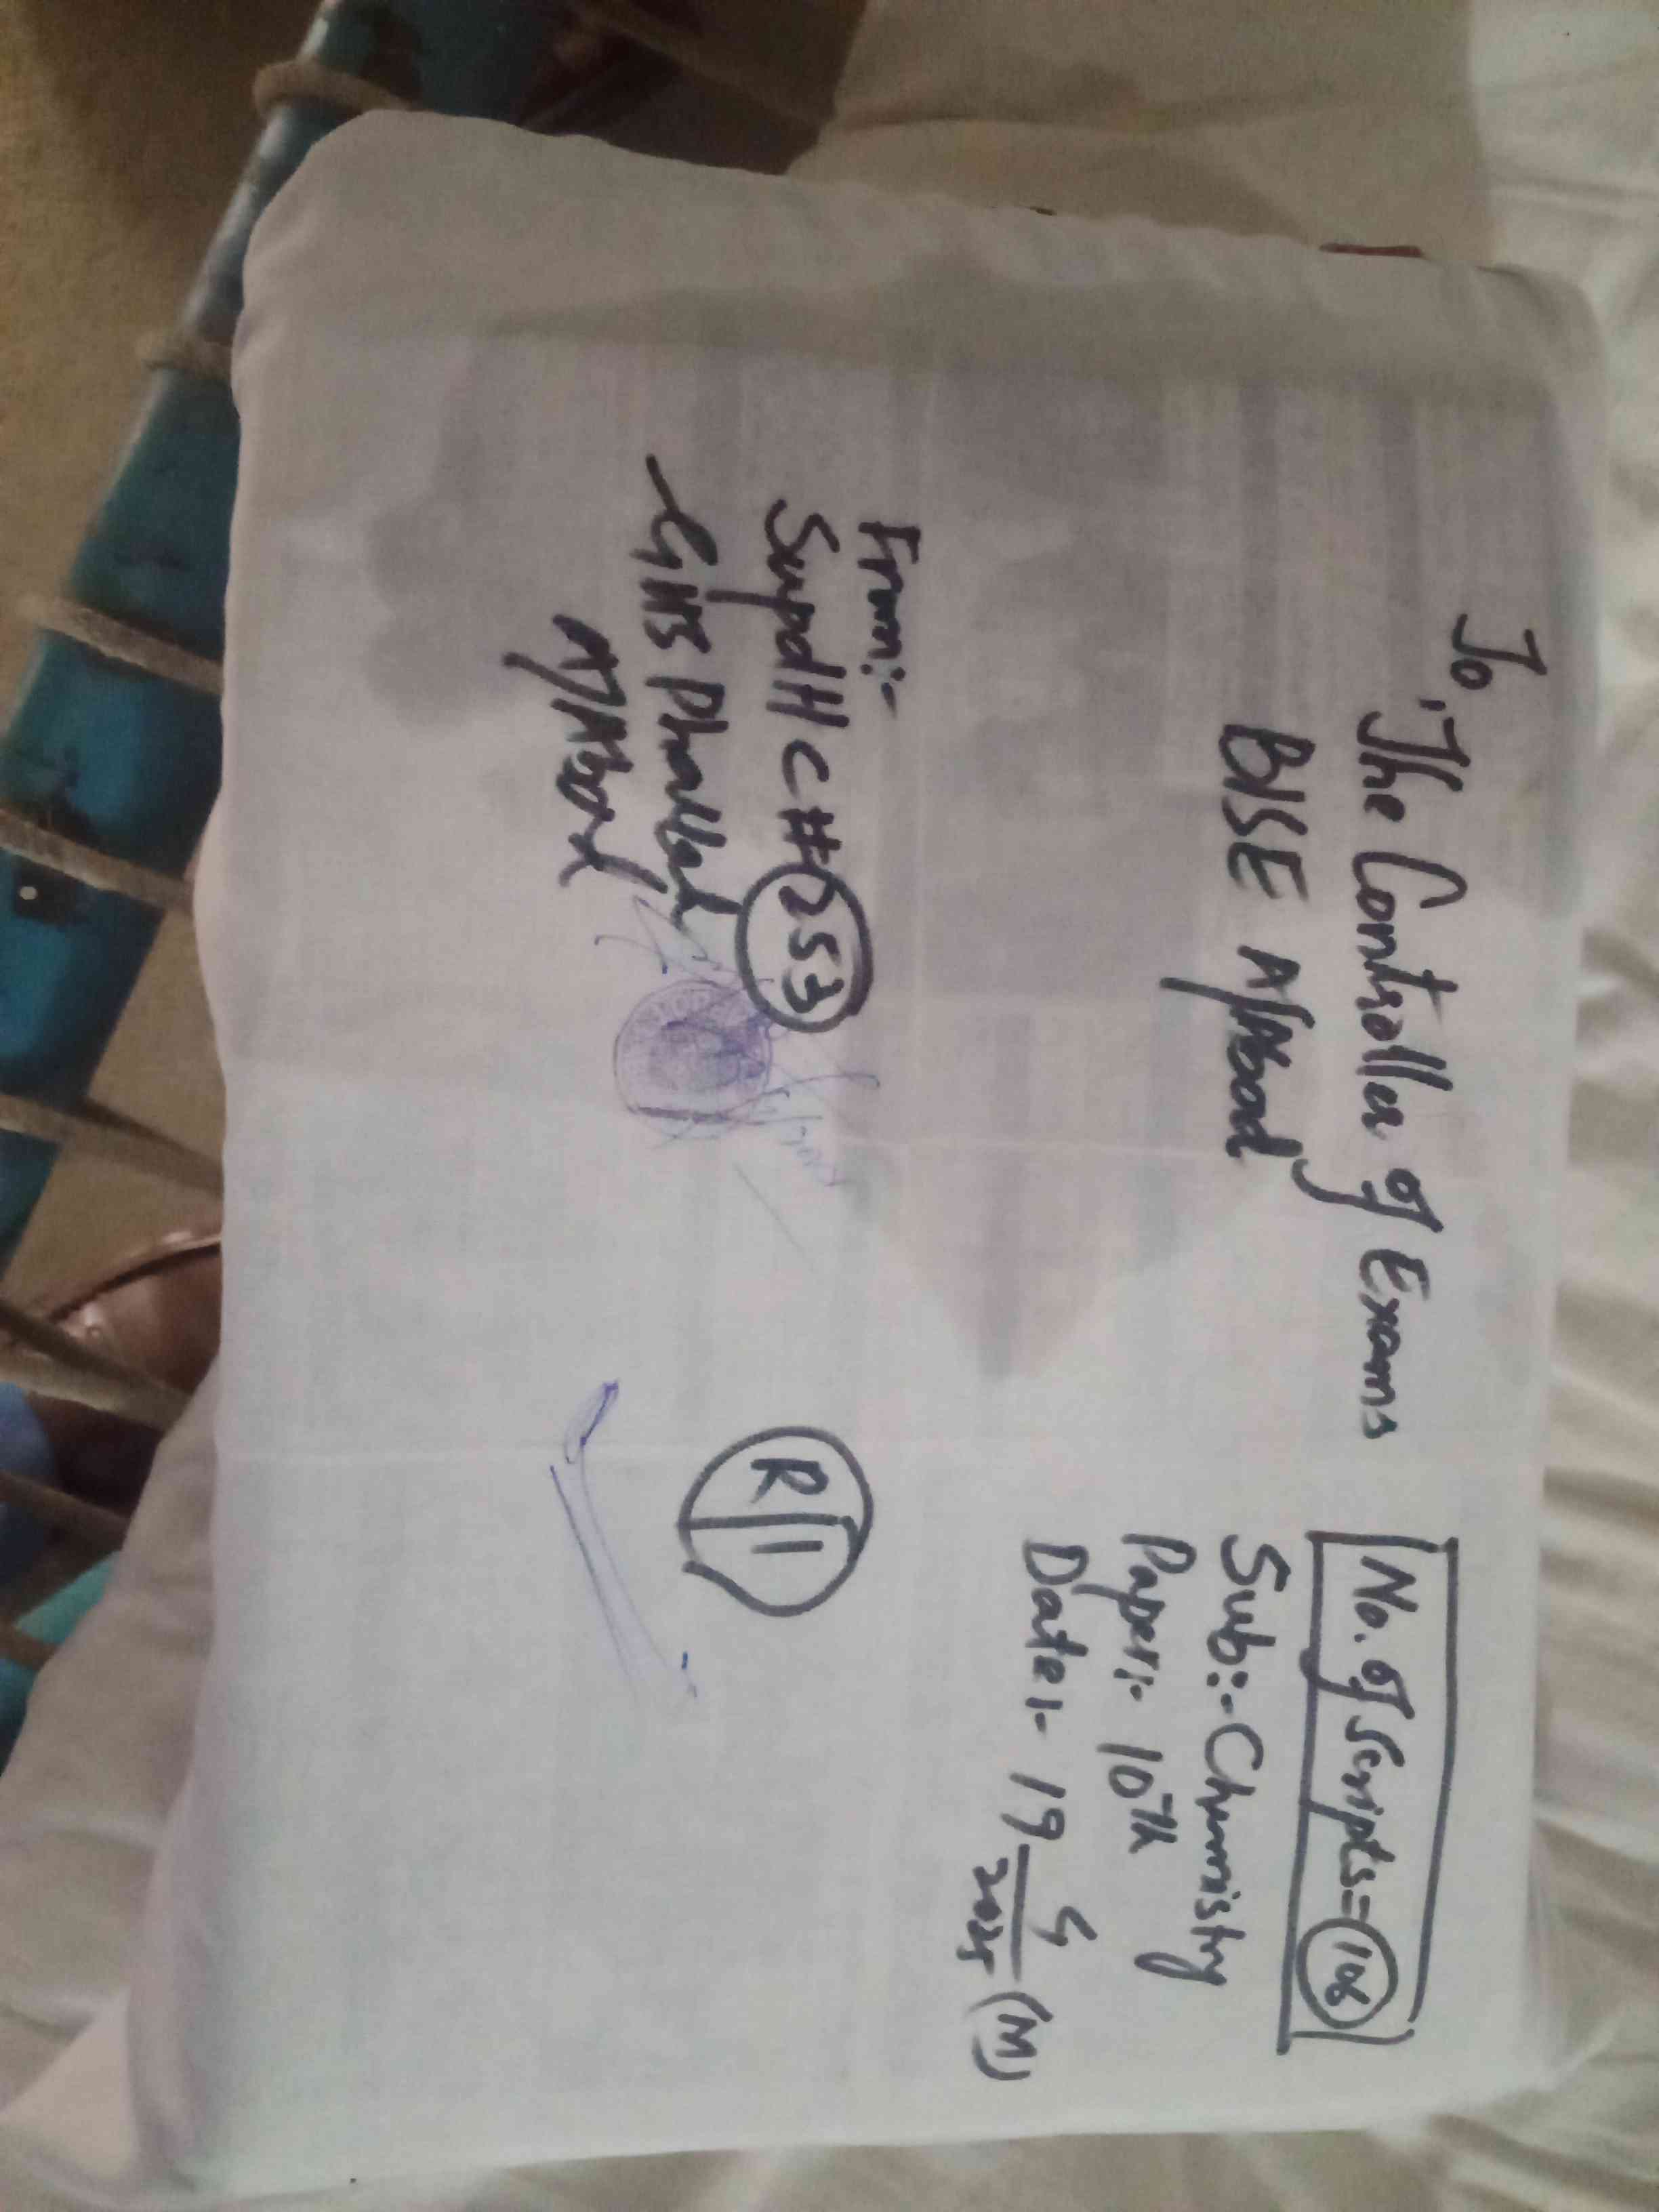 To,
The Controller of Exams
BISE A/Abad
No. of Scripts = 106
Sub:- Chemistry
Paper:- 10th
Date:- 19 4/2025 (M)
From:-
Supdtt C # 253
GHS
A/Abad
R II